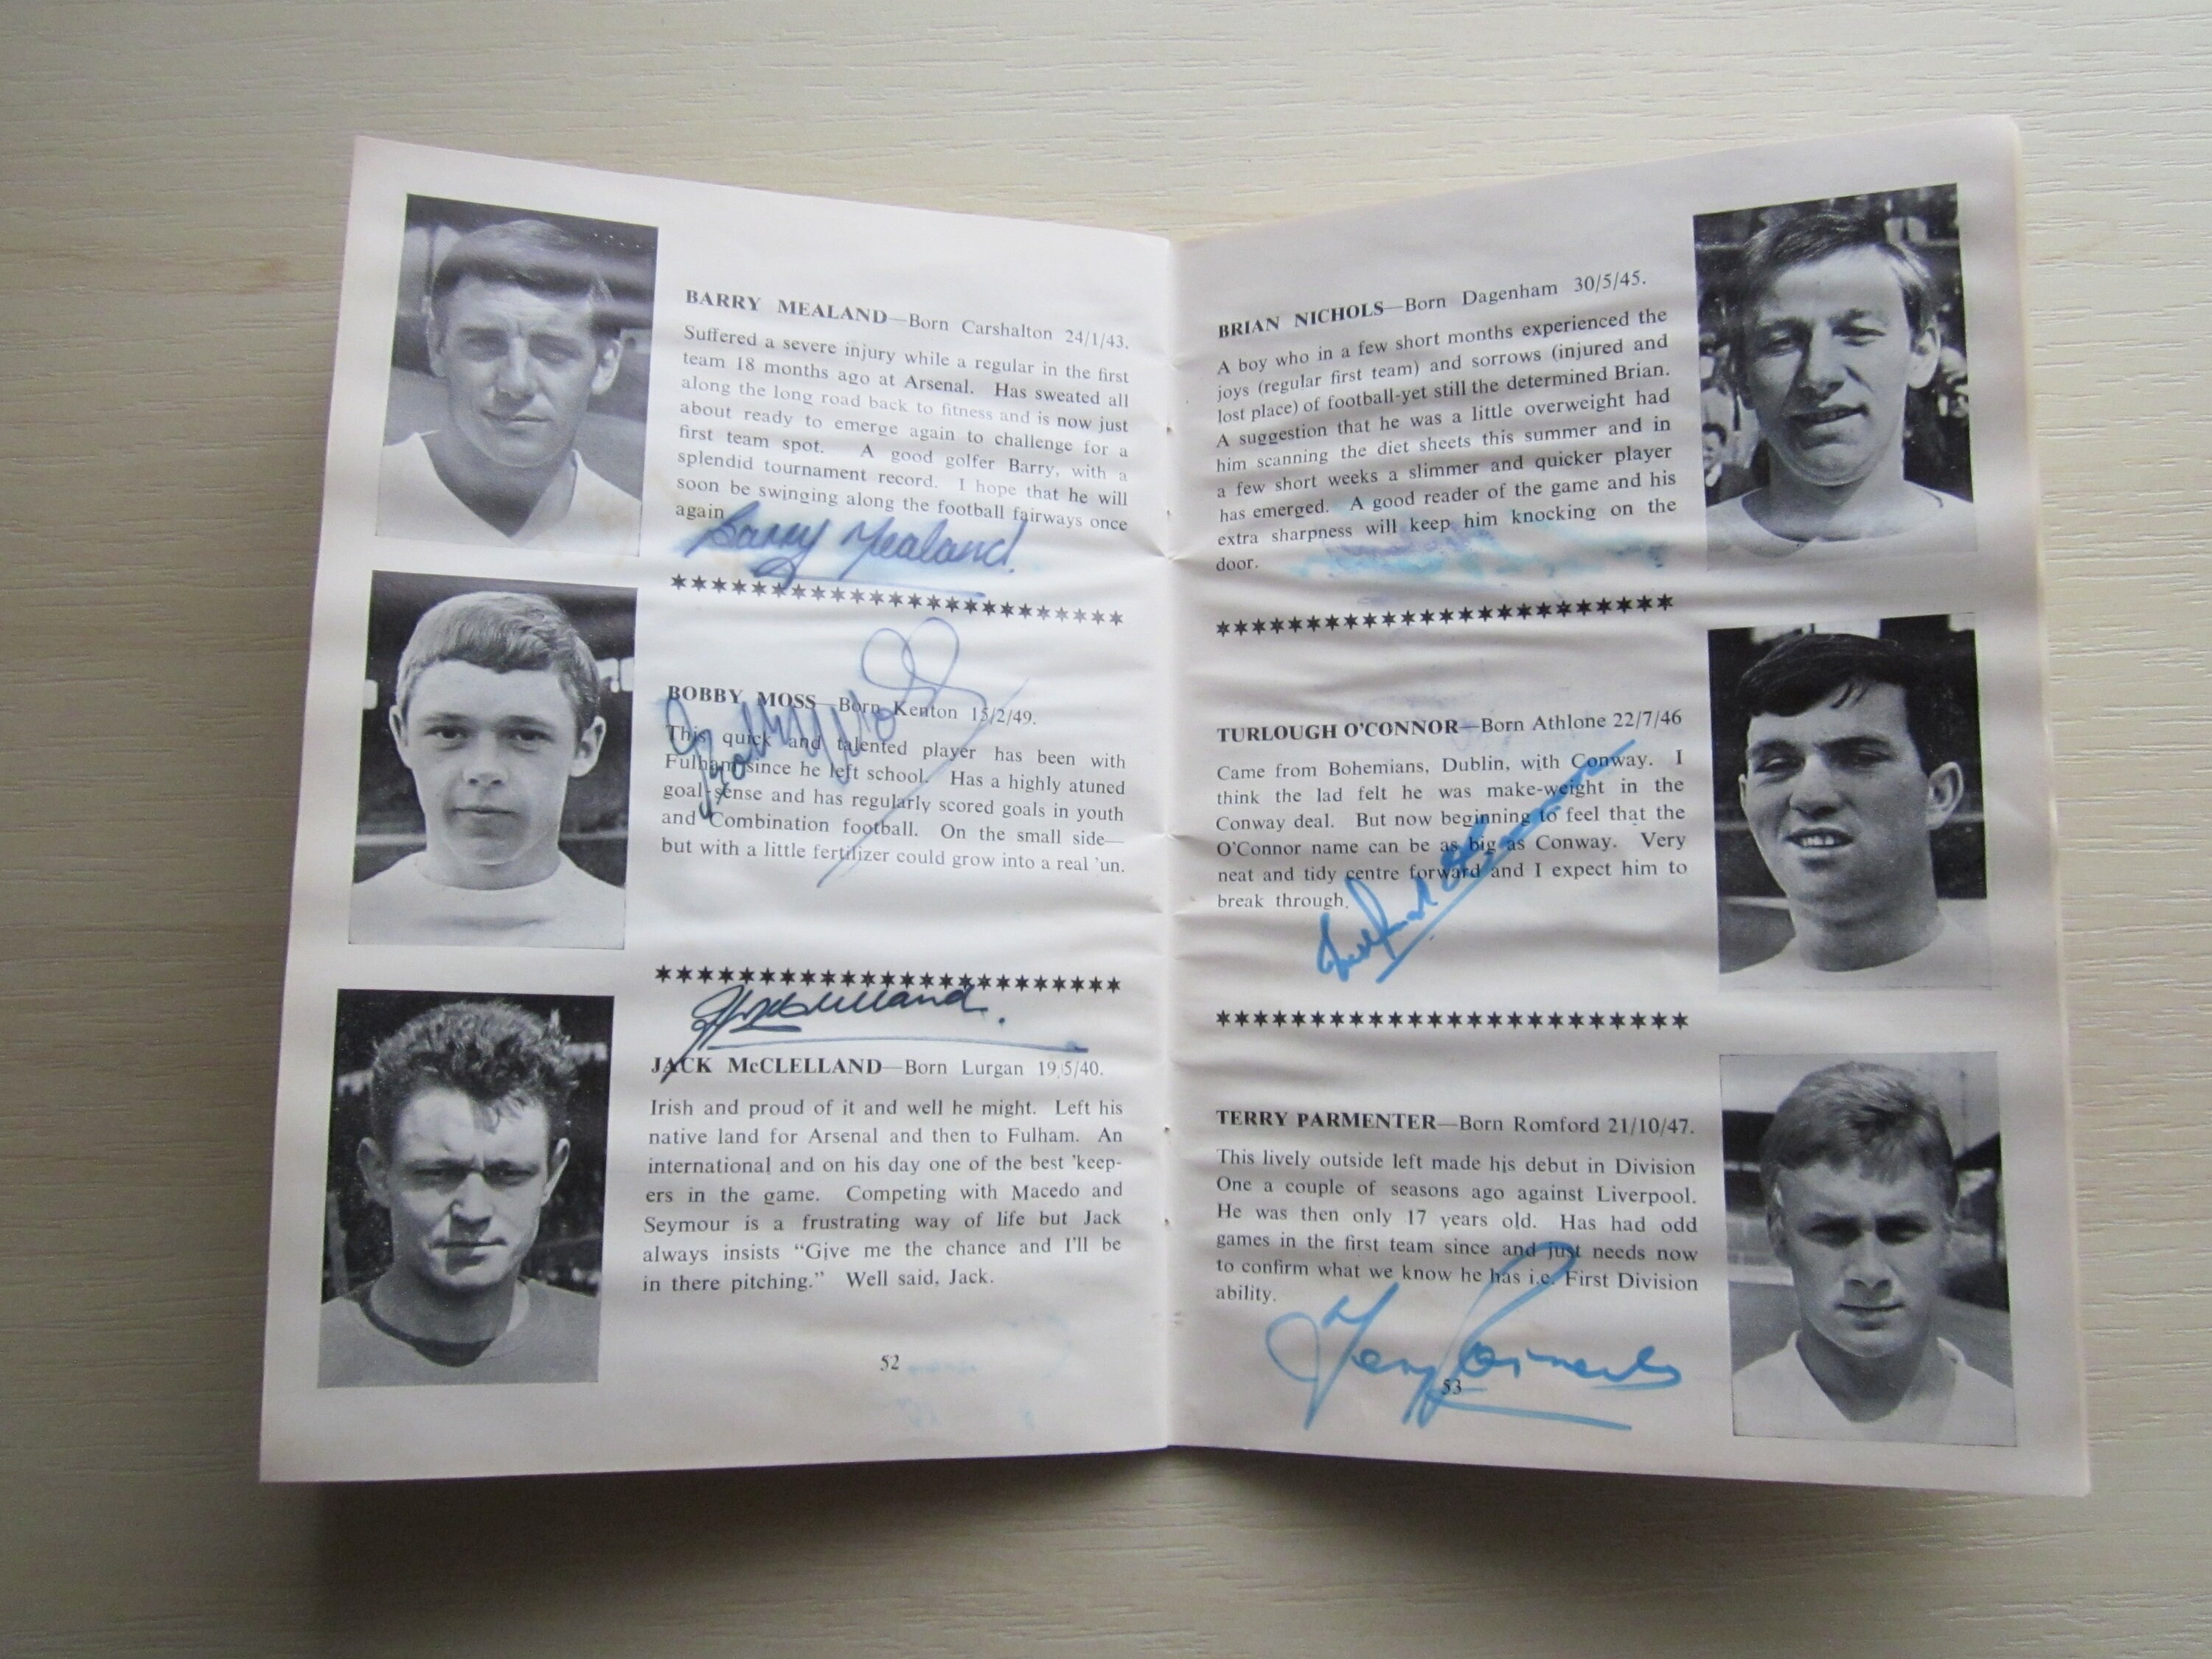 BARRY MEALAND—Born Carshalton 24/1/43.
Suffered a severe injury while a regular in the first
team 18 months ago at Arsenal. Has sweated all
along the long road back to fitness and is now just
about ready to emerge again to challenge for a
first team spot. A good golfer Barry, with a
splendid tournament record. I hope that he will
soon be swinging along the football fairways once
again
Barry Mealand
************************
BOBBY MOSS—Born Kenton 15/2/49.
Bobby Moss
This quick and talented player has been with
Fulham since he left school. Has a highly atuned
goal-sense and has regularly scored goals in youth
and Combination football. On the small side—
but with a little fertilizer could grow into a real 'un.
************************
JMcClelland.
JACK McCLELLAND—Born Lurgan 19/5/40.
Irish and proud of it and well he might. Left his
native land for Arsenal and then to Fulham. An
international and on his day one of the best 'keep-
ers in the game. Competing with Macedo and
Seymour is a frustrating way of life but Jack
always insists “Give me the chance and I'll be
in there pitching.” Well said, Jack.
52
BRIAN NICHOLS—Born Dagenham 30/5/45.
A boy who in a few short months experienced the
joys (regular first team) and sorrows (injured and
lost place) of football-yet still the determined Brian.
A suggestion that he was a little overweight had
him scanning the diet sheets this summer and in
a few short weeks a slimmer and quicker player
has emerged. A good reader of the game and his
extra sharpness will keep him knocking on the
door.
************************
TURLOUGH O'CONNOR—Born Athlone 22/7/46
Came from Bohemians, Dublin, with Conway. I
think the lad felt he was make-weight in the
Conway deal. But now beginning to feel that the
O'Connor name can be as big as Conway. Very
neat and tidy centre forward and I expect him to
break through.
Turlough O'Connor
************************
TERRY PARMENTER—Born Romford 21/10/47.
This lively outside left made his debut in Division
One a couple of seasons ago against Liverpool.
He was then only 17 years old. Has had odd
games in the first team since and just needs now
to confirm what we know he has i.e. First Division
ability.
Terry Parmenter
53